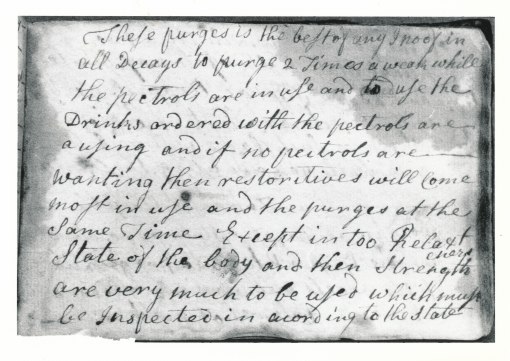 These purges is the best of any I noof in
all Decays to purge 2 Times a weak while
the pectrols are in use and to use the
Drinks ordered with the pectrols are
a using and if no pectrols are
wanting then restoritives will Come
most in use and the purges at the
Same Time Except in too Relaxt
State of the body and then Strength
eners
are very much to be used which must
be Inspected in acording to the State